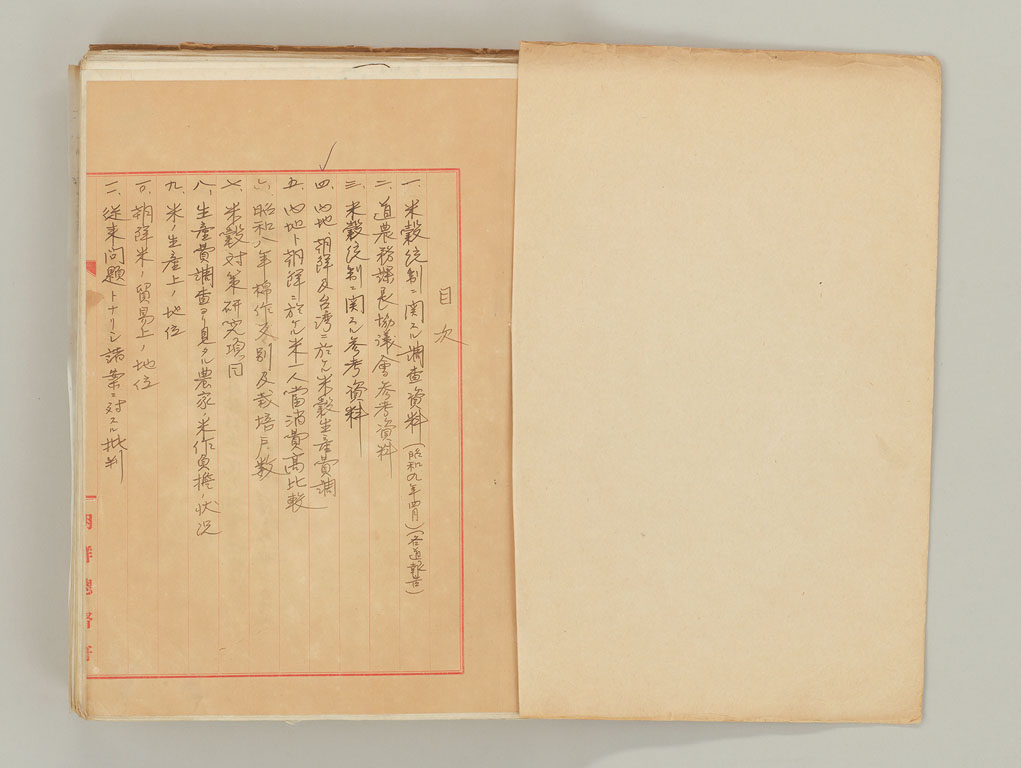 目次
一、米穀統制ニ関スル調査資料(昭和九年四月)(各道報告)
二、道農務課長協議會参考資料
三、米穀統制ニ関スル参考資料
四、内地、朝鮮及台湾ニ於ケル米穀生産費調
五、内地ト朝鮮ニ於ケル米一人當消費高比較
六、昭和八年棉作反別及栽培戸数
七、米穀対策研究項目
八、生産費調査ヨリ見タル農家ノ米作負担ノ状況
九、米ノ生産上ノ地位
一〇、朝鮮米ノ貿易上ノ地位
一一、従来問題トナリシ諸案ニ対スル批判
朝鮮總督府